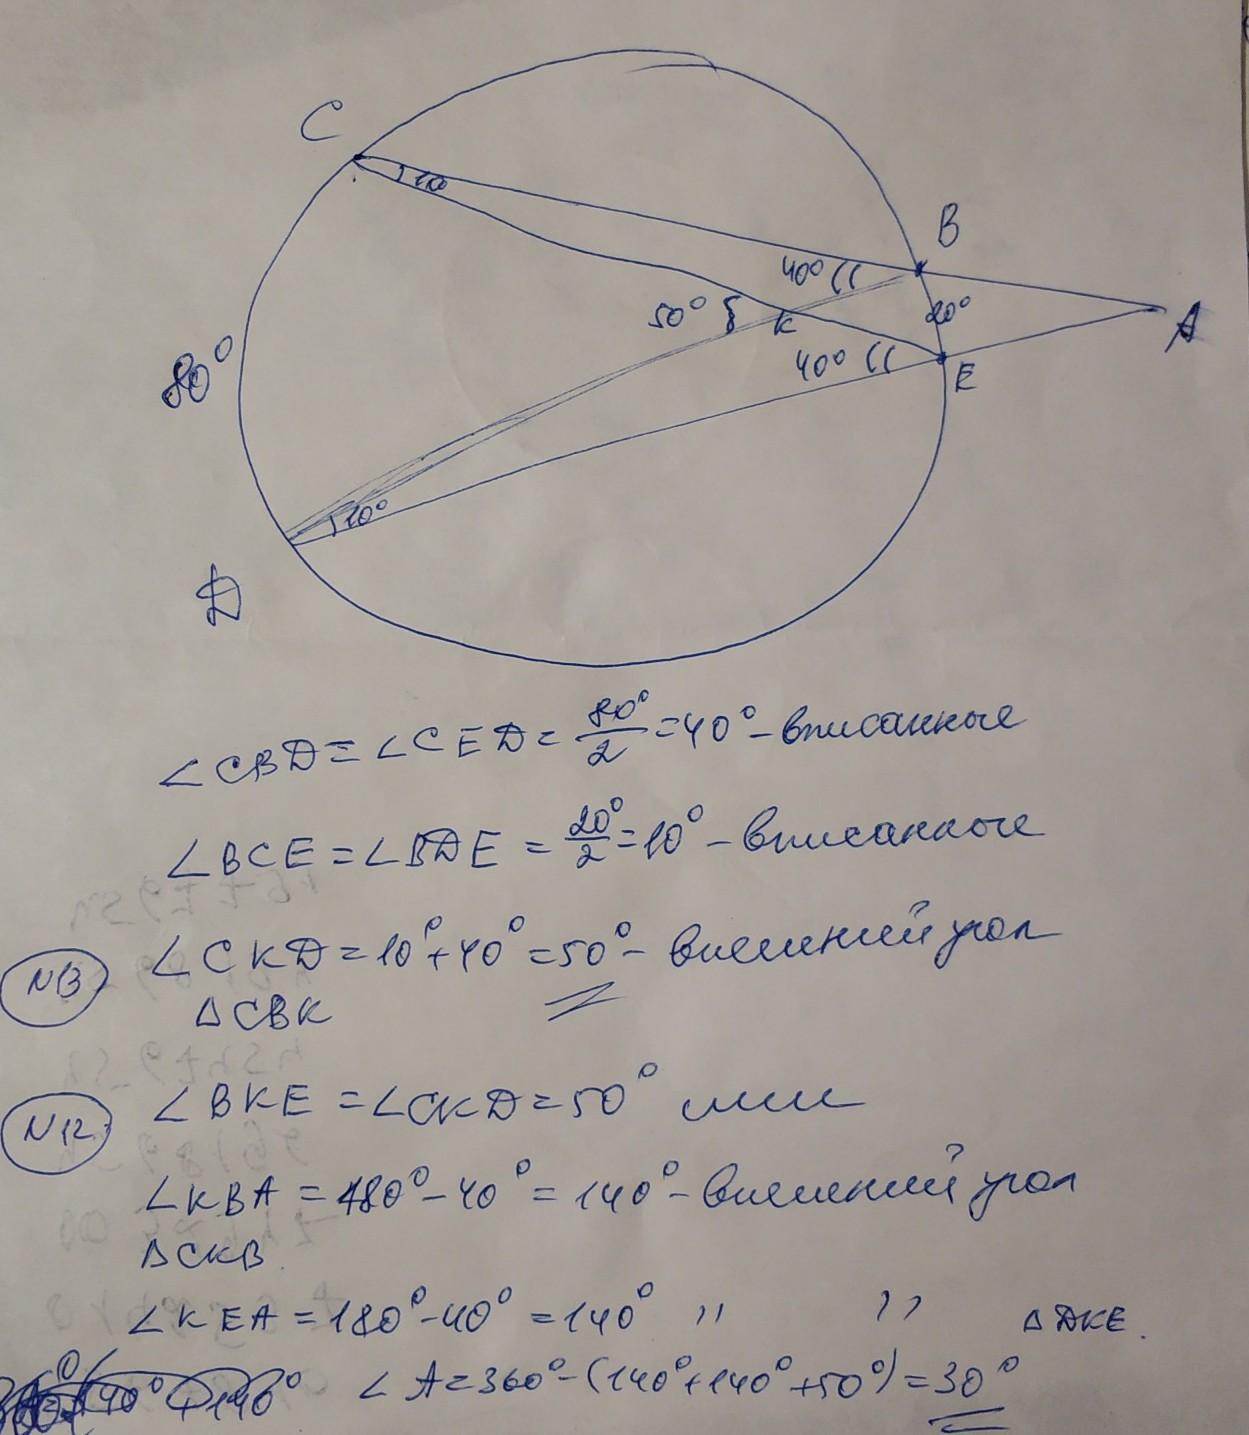 C
10
B
40°
50°
20°
K
A
80°
40°
E
10°
D
∠CBD = ∠CED = 80°/2 = 40° - вписанные
∠BCE = ∠BDE = 20°/2 = 10° - вписанные
N13 ∠CKD = 10° + 40° = 50° - внешний угол
ΔCBK
N12. ∠BKE = ∠CKD = 50°
∠KBA = 180° - 40° = 140° - внешний угол
ΔCKB.
∠KEA = 180° - 40° = 140° '' '' ΔDKE.
∠A = 360° - (140° + 140° + 50°) = 30°